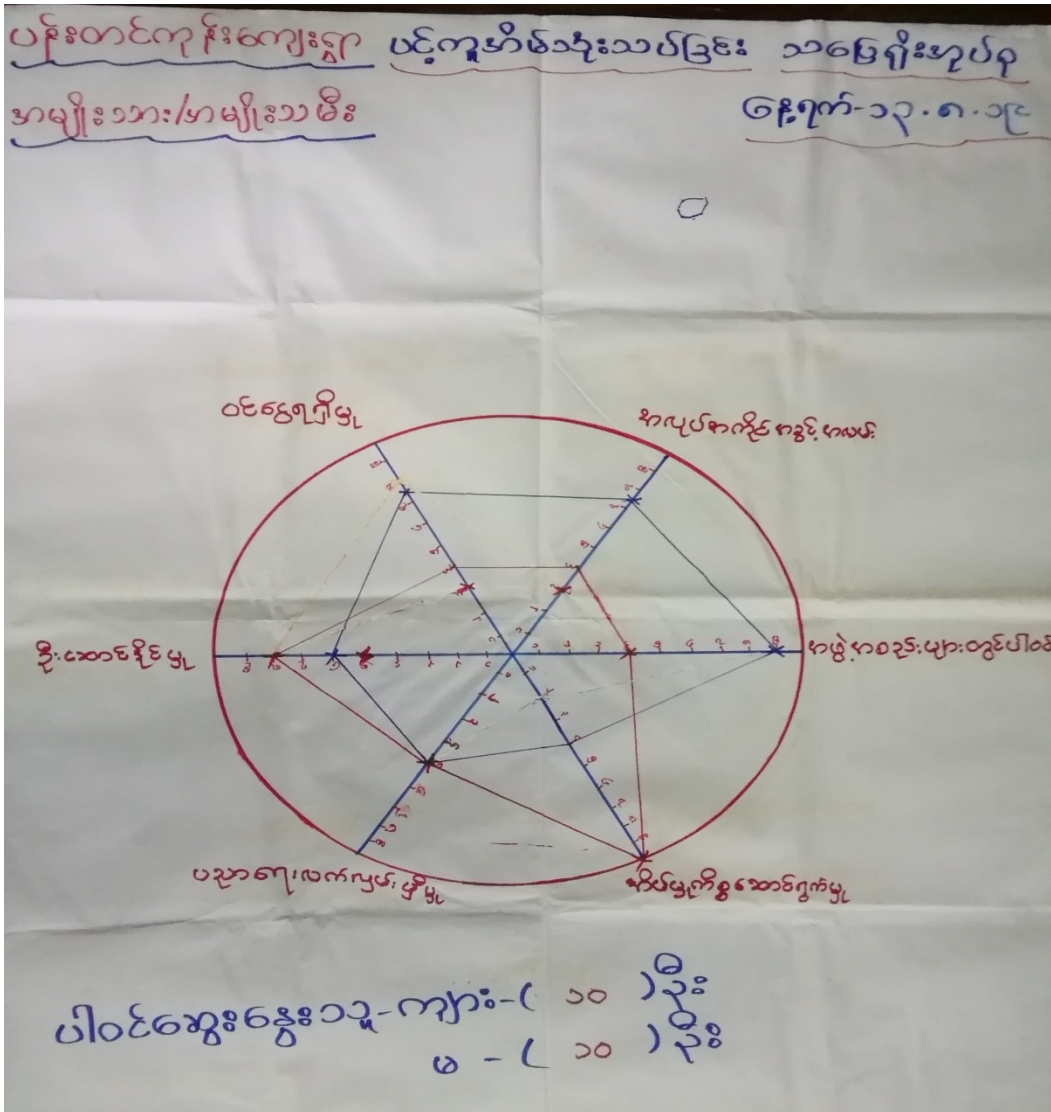 ပန်းတင်ကုန်းကျေးရွာ ပင့်ကူအိမ်သုံးသပ်ခြင်း သပြေရိုးအုပ်စု
အမျိုးသား/အမျိုးသမီး နေ့ရက်-၁၃.၈.၁၉
ဝင်ငွေရရှိမှု အလုပ်အကိုင်အခွင့်အလမ်း
ဦးဆောင်နိုင်မှု အဖွဲ့အစည်းများတွင်ပါဝင်
ပညာရေးလက်လှမ်းမှီမှု အိမ်မှုကိစ္စဆောင်ရွက်မှု
ပါဝင်ဆွေးနွေးသူ-ကျား-( ၁၀ )ဦး
မ - ( ၁၀ ) ဦး